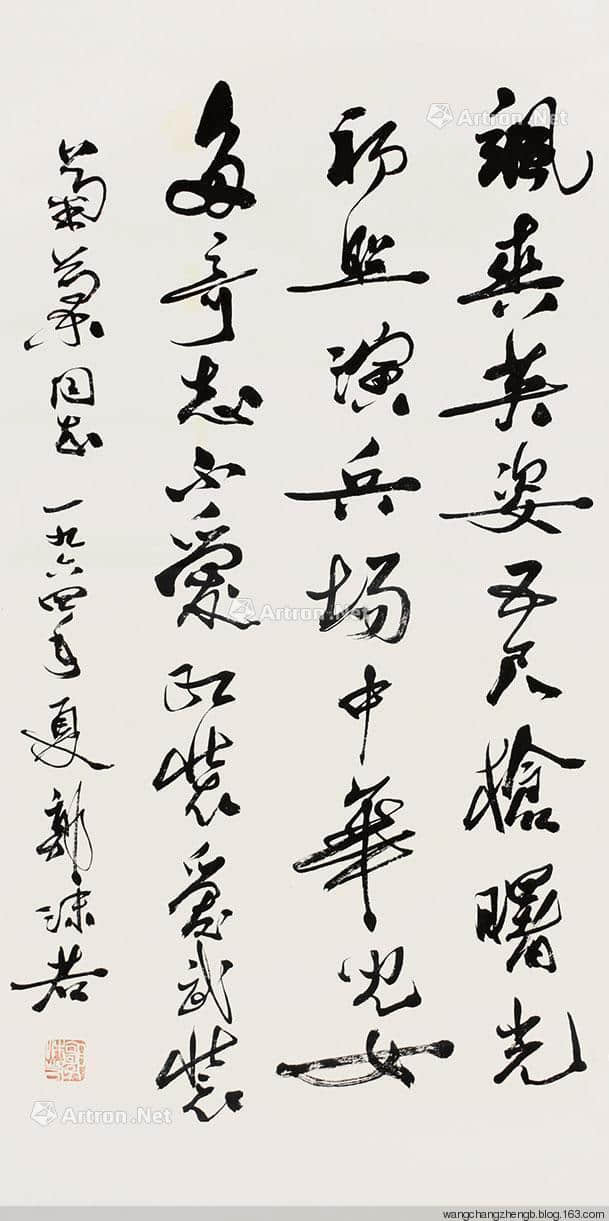 颯爽英姿五尺槍曙光
初照演兵場中華兒女
多奇志不愛紅裝愛武裝
菊同志 一九六四年夏 郭沫若
Artron.Net
Artron.Net
Artron.Net
wangchangzhengb.blog.163.com